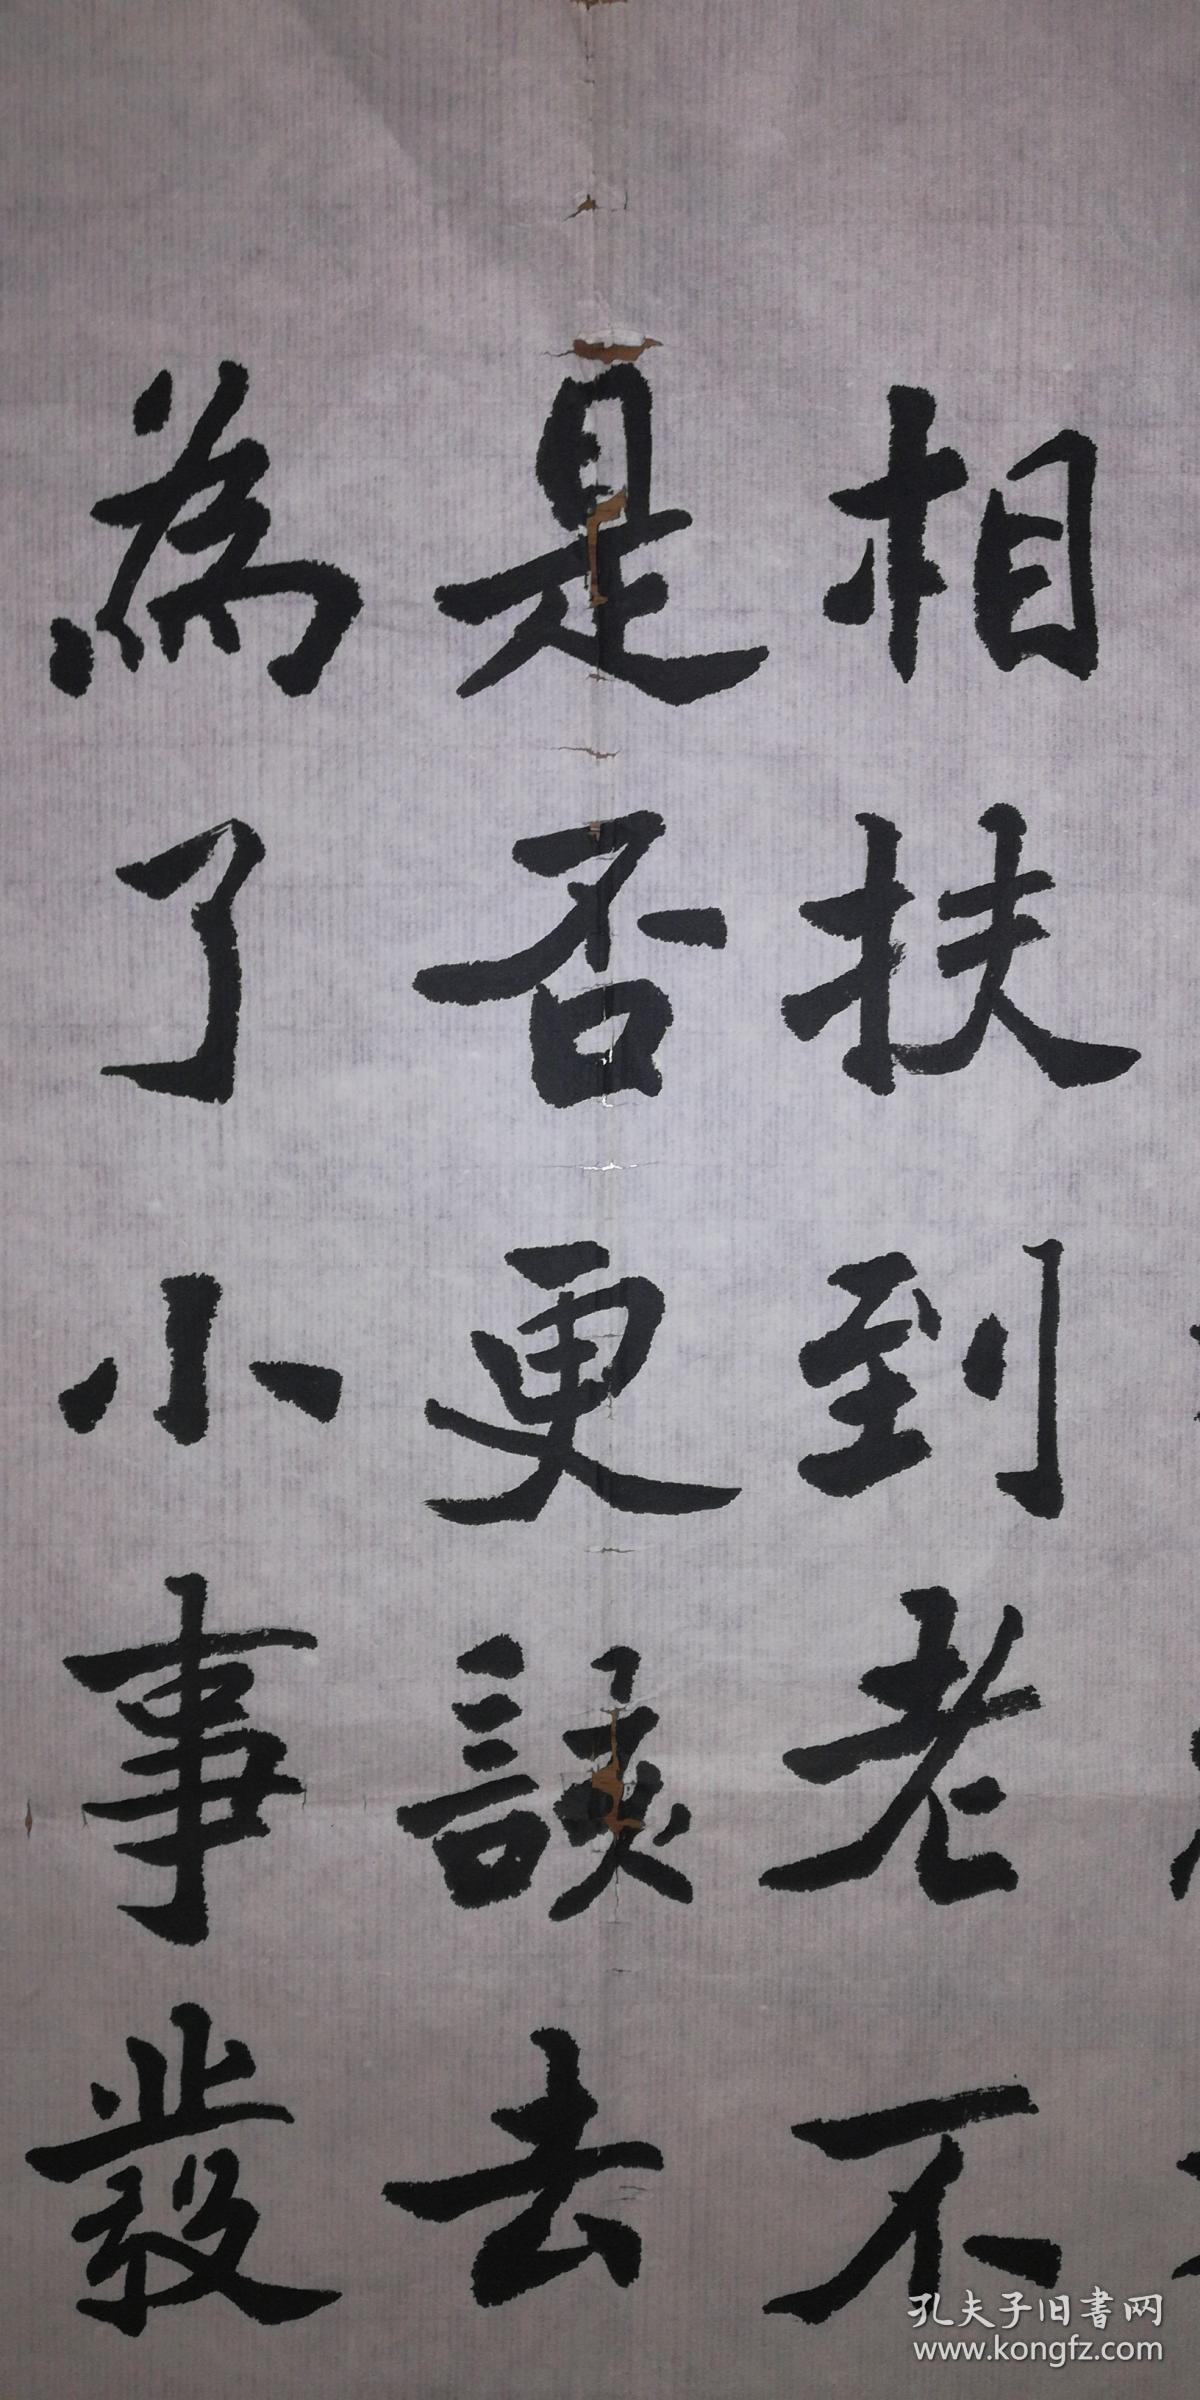 相扶到老不
是否更該去
為了小事發
孔夫子旧書网
www.kongfz.com